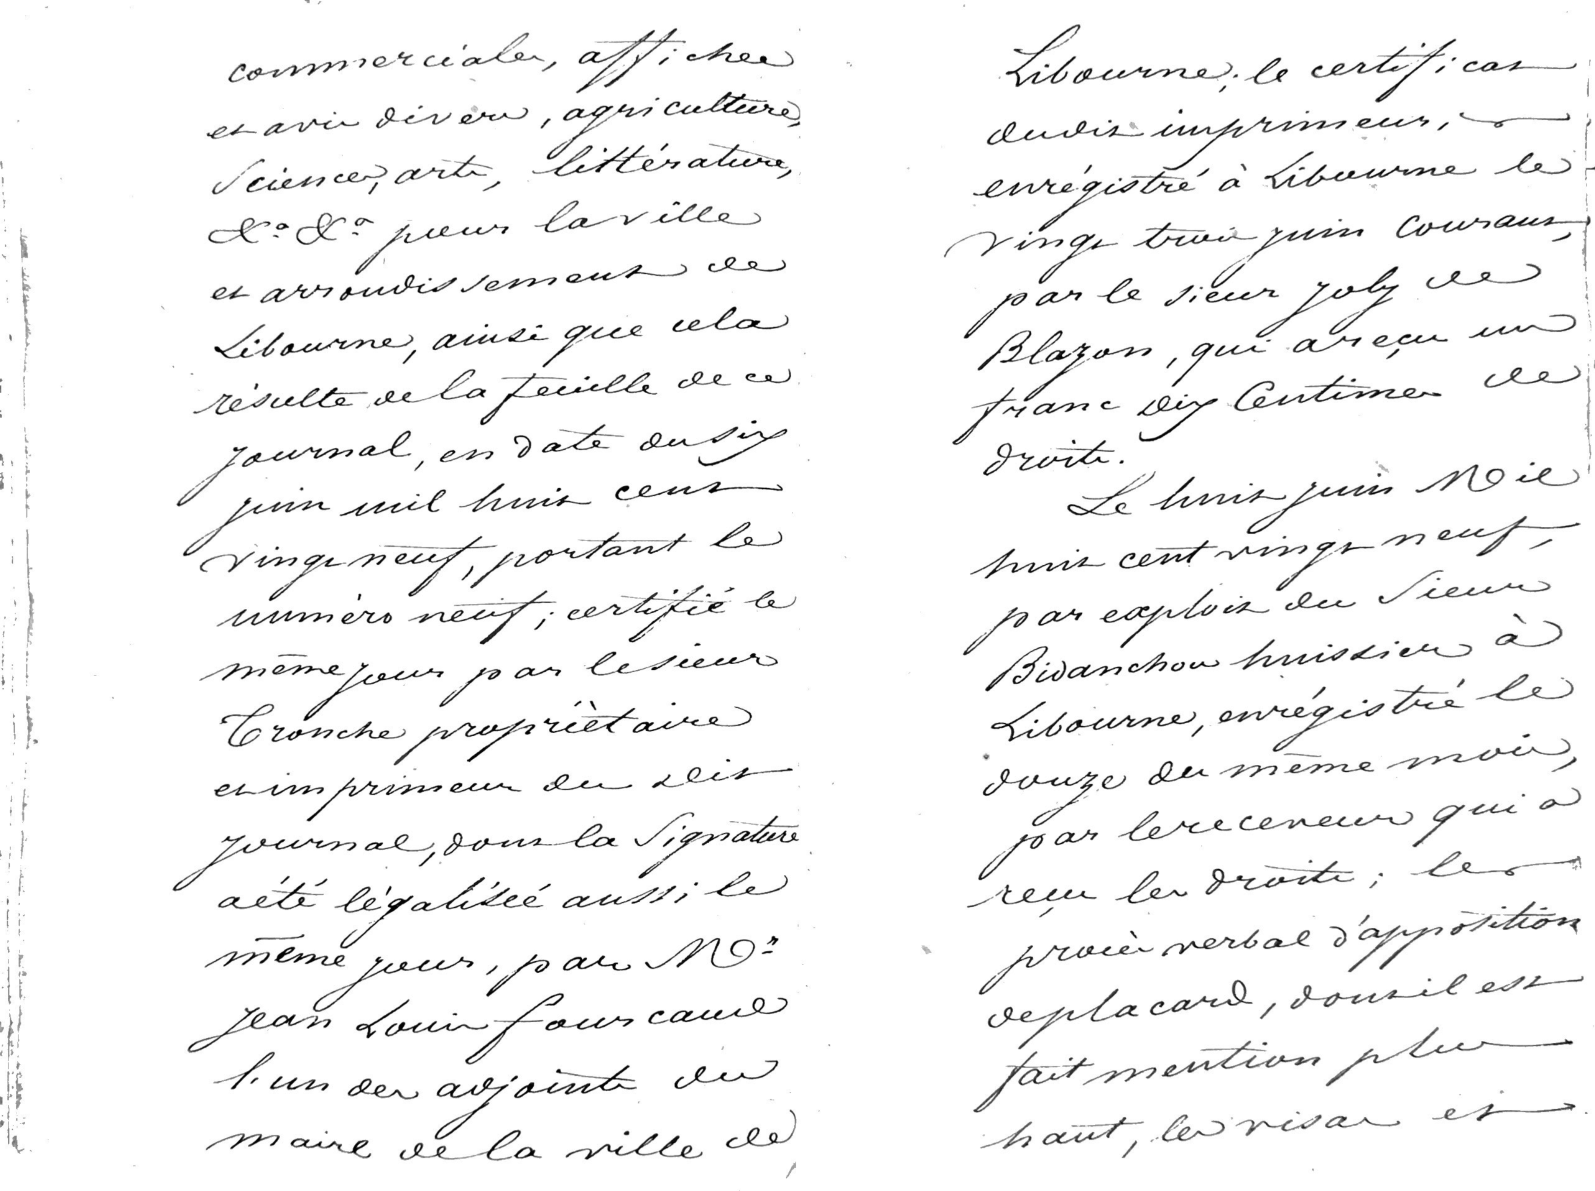 commerciales, affiches
et avis divers, agriculture,
Sciences, arts, littérature,
&a &a pour la ville
et arrondissement de
Libourne, ainsi que cela
résulte de la feuille de ce
journal, en date du six
juin mil huit cent
vingt neuf, portant le
numéro neuf; certifié le
même jour par le sieur
Tronche propriètaire
et imprimeur du dit
journal, dont la Signature
a été légalisée aussi le
même jour, par Mr
Jean Louis fourcaud
l'un des adjoints du
maire de la ville de
Libourne; le certificat
dudit imprimeur,
enrégistré à Libourne le
vingt trois juin Courant,
par le sieur Joly de
Blazon, qui a reçu un
franc dix Centimes de
droits.
Le huit juin Mil
huit cent vingt neuf,
par exploit du Sieur
Bidanchou huissier à
Libourne, enrégistré le
douze du même mois,
par le receveur qui a
reçu les droits; le
procès verbal d'apposition
de placard, dont il est
fait mention plus
haut, les visas et